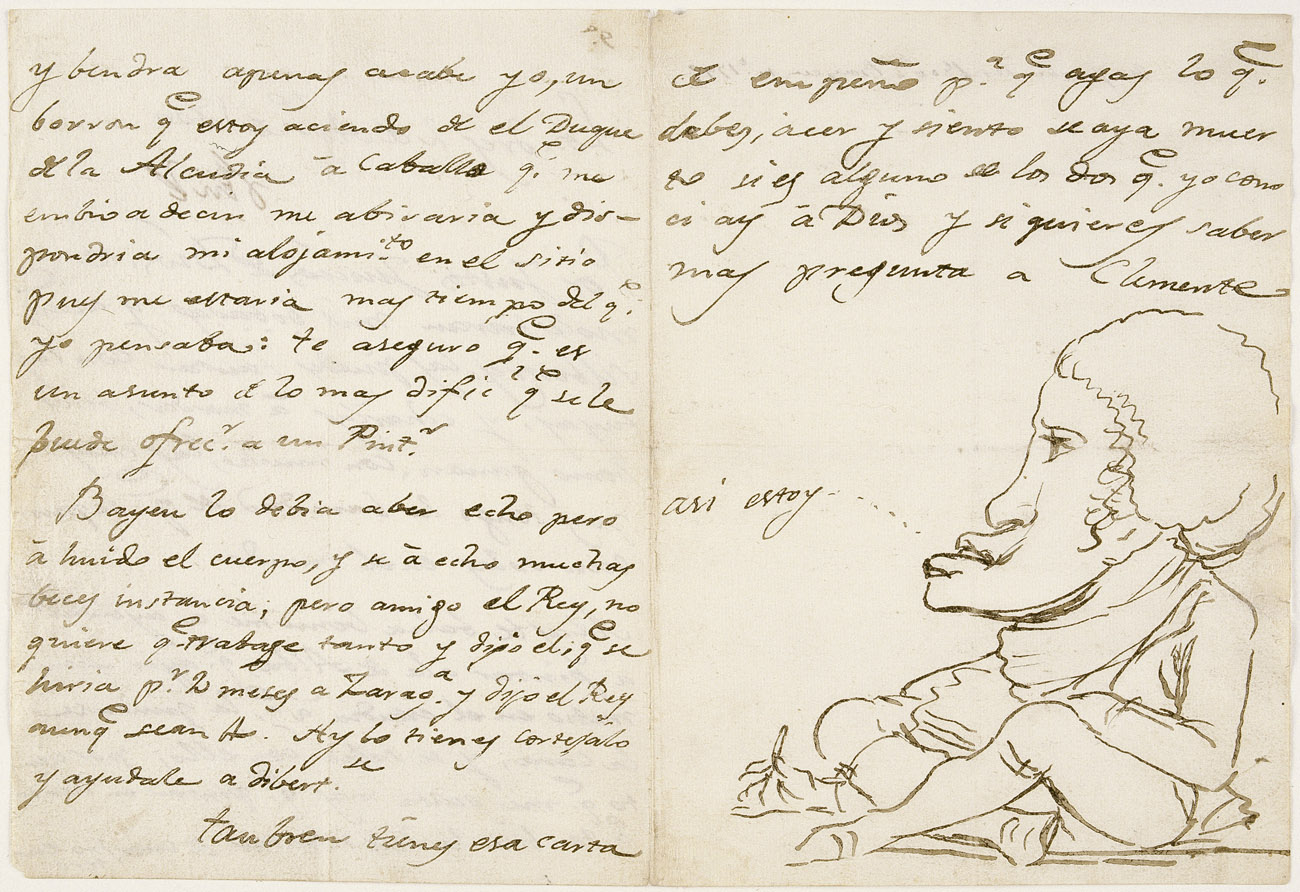 y bendra apenas acabe yo, un
borron q.e estoy aciendo de el Duque
de la Alcudia â Caballo q.e me
embio a decir me abisaria y dis-
pondria mi alojami.to en el sitio
pues me estaria mas tiempo del q.e
yo pensaba: te aseguro q.e es
un asunto de lo mas dificil q.e se le
puede ofrec.r a un Pint.r
Bayeu lo debia aber echo pero
â huido el cuerpo, y se â echo muchas
beces instancia; pero amigo el Rey, no
quiere q.e trabage tanto y dijo el q.e se
hiria p.r 2 meses a Zarag.a y dijo el Rey
aunq.e sean 4. Ay lo tienes cortejalo
y ayudale a dibert.se
tanbien tienes esa carta
de empeño p.a q.e agas lo q.e
debes, acer y siento se aya muer
to si es alguno de los dos q.e yo cono
ci ay â Dios y si quieres saber
mas pregunta a Clemente
asi estoy